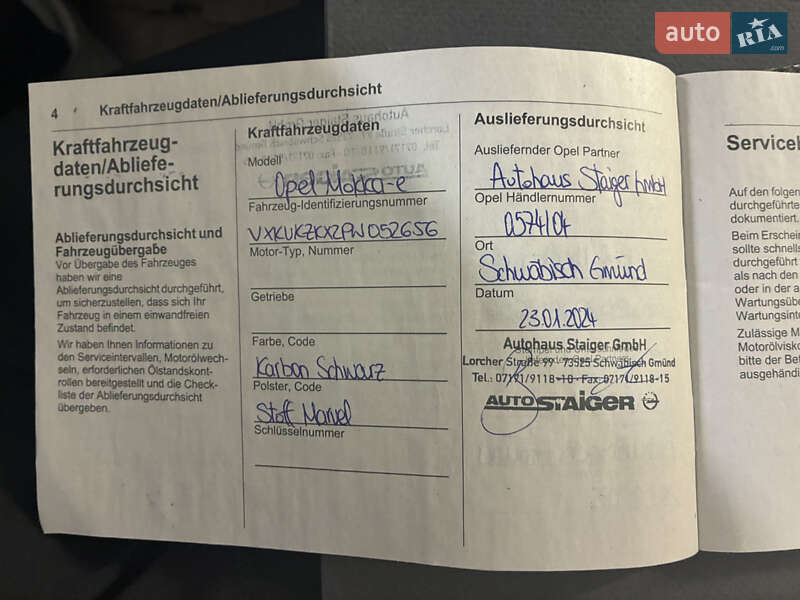 auto RIA .com
4 Kraftfahrzeugdaten/Ablieferungsdurchsicht
Kraftfahrzeug-
daten/Abliefe-
rungsdurchsicht
Ablieferungsdurchsicht und
Fahrzeugübergabe
Vor Übergabe des Fahrzeuges
haben wir eine
Ablieferungsdurchsicht durchgeführt,
um sicherzustellen, dass sich Ihr
Fahrzeug in einem einwandfreien
Zustand befindet.
Wir haben Ihnen Informationen zu
den Serviceintervallen, Motorölwech-
seln, erforderlichen Ölstandskont-
rollen bereitgestellt und die Check-
liste der Ablieferungsdurchsicht
übergeben.
Kraftfahrzeugdaten
Modell
Opel Mokka-e
Fahrzeug-Identifizierungsnummer
VXKUKZKXZPW052656
Motor-Typ, Nummer
Getriebe
Farbe, Code
Karbon Schwarz
Polster, Code
Stoff Marvel
Schlüsselnummer
Auslieferungsdurchsicht
Ausliefernder Opel Partner
Autohaus Staiger GmbH
Opel Händlernummer
0574/04
Ort
Schwäbisch Gmünd
Datum
23.01.2024
Autohaus Staiger GmbH
Lorcher Straße 99 · 73525 Schwäbisch Gmünd
Tel.: 07171/9118-10 · Fax: 07171/9118-15
AUTO STAIGER
Auf den folgen
durchgeführte
dokumentiert.
Beim Erschein
sollte schnells
durchgeführt
als nach den
oder in der a
Wartungsüb
Wartungsint
Zulässige M
Motorölvisko
bitte der Bet
ausgehändi